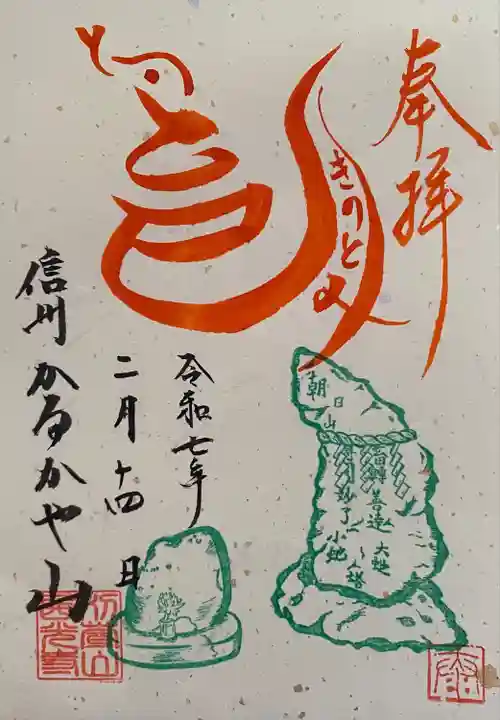 奉拝
きのと巳
朝日山
善達 大蛇
小蛇
令和七年
二月十四日
信州かるかや山
苅萱山
西光寺